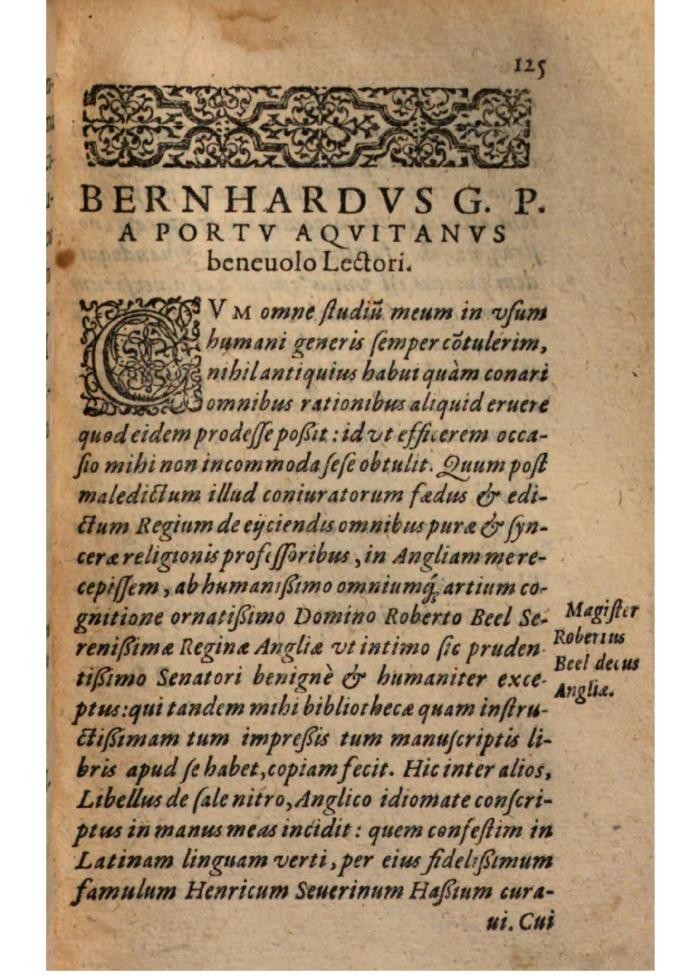 125
BERNHARDVS G. P.
A PORTV AQVITANVS
beneuolo Lectori.
CVM omne ſtudiũ meum in vſum
humani generis ſemper cõtulerim,
nihil antiquius habui quàm conari
omnibus rationibus aliquid eruere
quod eidem prodeſſe poßit : id vt efficerem occa-
ſio mihi non incommoda ſeſe obtulit. Quum poſt
maledictum illud coniuratorum fœdus & edi-
ctum Regium de eijciendis omnibus puræ & ſyn-
ceræ religionis profeſſoribus, in Angliam me re-
cepiſſem, ab humanißimo omniumq́; artium co-
gnitione ornatißimo Domino Roberto Beel Se-
renißimæ Reginæ Angliæ vt intimo ſic pruden-
tißimo Senatori benignè & humaniter exce-
ptus: qui tandem mihi bibliothecæ quam inſtru-
ctißimam tum impreßis tum manuſcriptis li-
bris apud ſe habet, copiam fecit. Hic inter alios,
Libellus de ſale nitro, Anglico idiomate conſcri-
ptus in manus meas incidit : quem confeſtim in
Latinam linguam verti, per eius fidelißimum
famulum Henricum Seuerinum Haßium cura-
ui. Cui
Magiſter
Robertus
Beel decus
Angliæ.